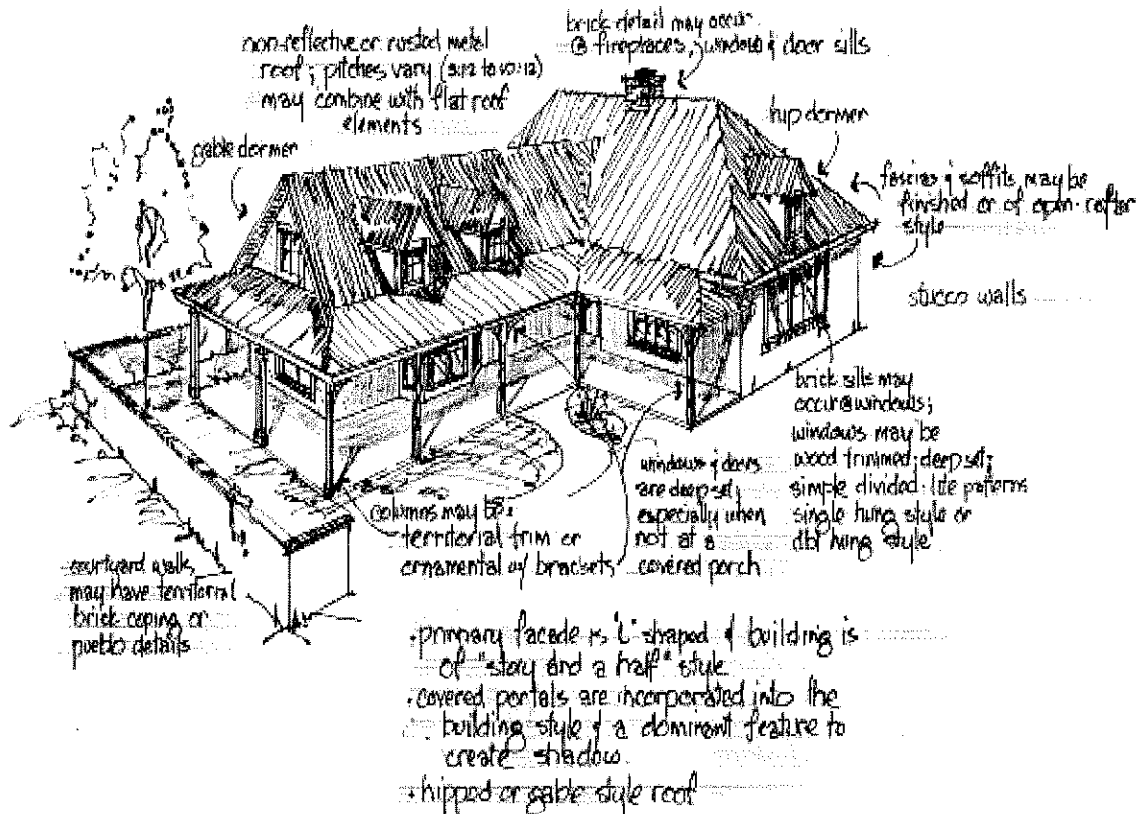 brick detail may occur
@ fireplaces, window & door sills
non-reflective or rusted metal
roof; pitches vary (3:12 to 10:12)
may combine with flat roof
elements
gable dormer
hip dormer
fascias & soffits may be
finished or of open-rafter
style
stucco walls
brick sills may
occur @ windows;
windows may be
wood trimmed; deep set;
simple divided-lite patterns
single hung style or
dbl hung style
windows & doors
are deep set,
especially when
not at a
covered porch
columns may be
territorial trim or
ornamental w/ brackets
courtyard walls
may have territorial
brick coping or
pueblo details
•primary facade is "L" shaped & building is
of "story and a half" style
•covered portals are incorporated into the
building style & a dominant feature to
create shadow
•hipped or gable style roof